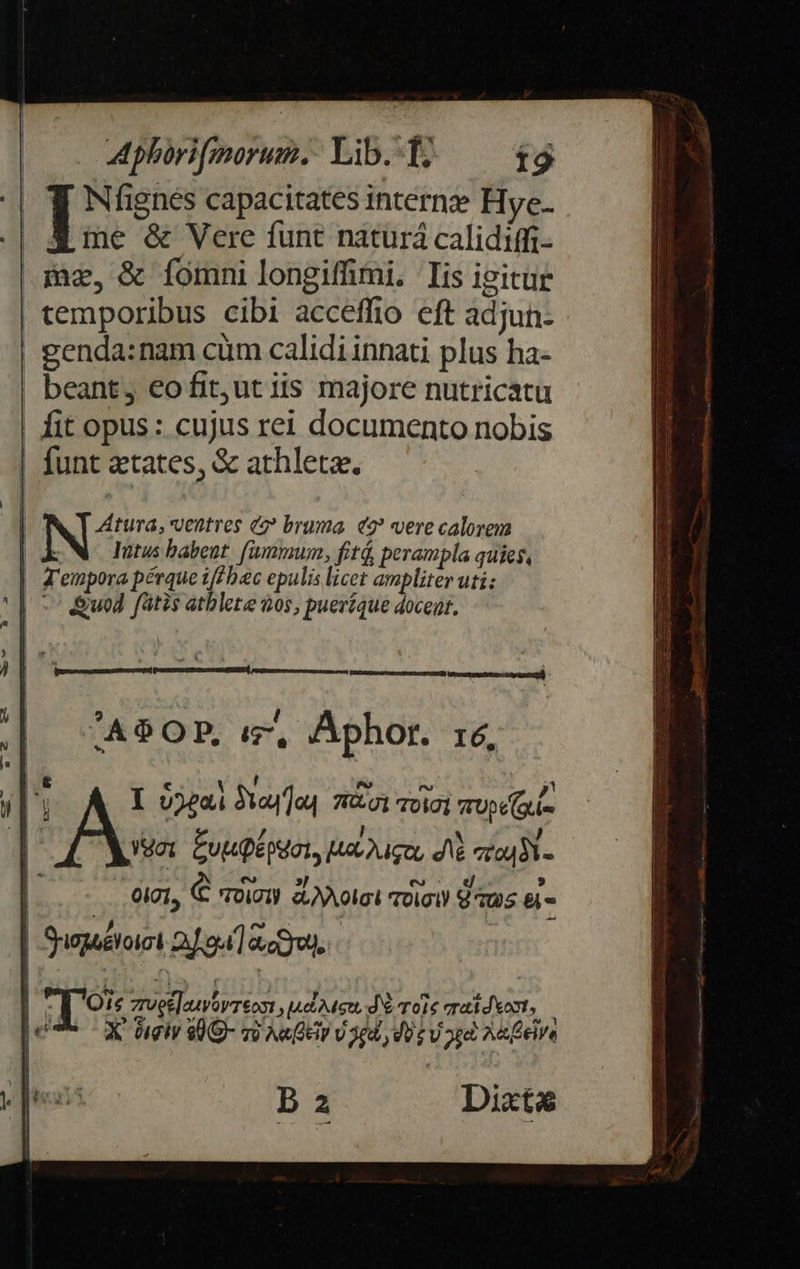 Aphorismorum. Lib. I. 19
INsignes capacitates internæ Hye-
me & Vere sunt naturá calidissi-
mæ, & somni longissimi. Iis igitur
temporibus cibi accessio est adjun-
genda: nam cùm calidi innati plus ha-
beant, eo fit, ut iis majore nutricatu
sit opus: cujus rei documento nobis
sunt ætates, & athletæ.
NAtura, ventres & bruma & vere calorem
Intus habent summum, fitq́, perampla quies,
Tempora pérque issthæc epulis licet ampliter uti:
Quod satìs athletæ nos, puerîque docent.
ἈΦΟΡ. ιϛʹ, Aphor. 16,
ΑΙ ὑγραὶ δίαιται πᾶσι τοῖσι πυρεταί-
νουσι ξυμφέρουσι, μάλιστα δὲ παιδί-
οισι, καὶ τοῖσιν ἄλλοισι τοῖσιν οὕτως εἰ-
θισμένοισι διαιτᾶσθαι.
ΤΟῖς πυρεταινόντεσσι, μάλιστα δὲ τοῖς παίδεσσι,
Χ' οἷσιν ἔθος τὸ λαβεῖν ὑγρά, δὸς ὑγρὰ λαβεῖν.
B 2 Dixtæ